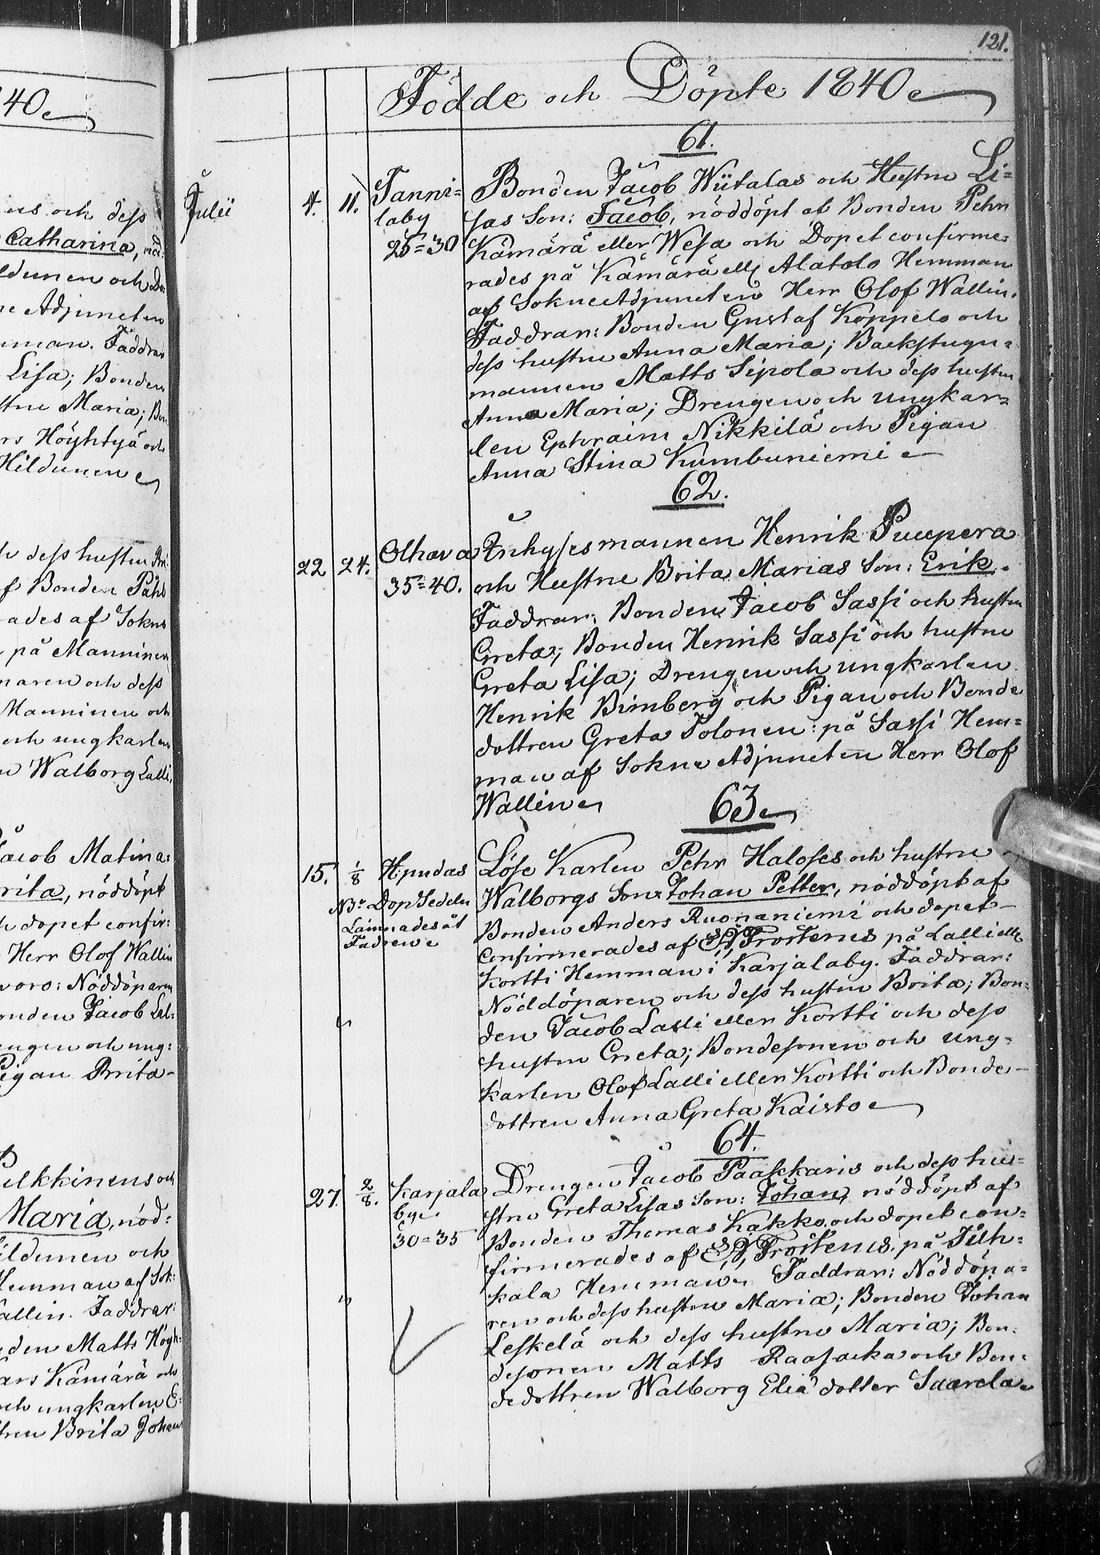 121.
40
Födde och Döpte 1840
ens och dess
Catharina, nöd
ldunen och Des
ne Adjuncten
mman. Faddrar
Lisa; Bonden
stru Maria; Bon
rs Höyhtyä och
Hildunen
dess hustru Bri
f Bonden Påhl
rades af Sokne
på Manninen
naren och dess
Manninen och
och ungkarlen
n Walborg Lalli
Jacob Matina:
rita, nöddöpt
h dopet confir:
Herr Olof Wallin
varo: Nöddöparen
onden Jacob Lal:
engen och ung:
Pigan Brita
Pelkkinens och
Maria, nöd:
Hildunen och
Hemman af Sok:
allin. Faddrar:
den Matts Högh:
ars Kämärä och
och ungkarlen E:
tren Brita Johan
61.
Julii 4. 11. Tanni- Bonden Jacob Wiitalas och Hustru Li=
laby sas Son: Jacob, nöddöpt af Bonden Petr
25=30 Kämärä eller Wesa och Dopet confirme=
rades på Kämärä ell. Alatolo Hemman
af SokneAdjuncten Herr Olof Wallin.
Faddrar: Bonden Gustaf Koppelo och
dess hustru Anna Maria; Backstugu=
mannen Matts Sipola och dess hustru
Anna Maria; Drengen och ungkar=
len Ephraim Nikkilä och Pigan
Anna Stina Kumbuniemi
62.
22 24. Olhava Inhysesmannen Henrik Puupera
35=40. och Hustru Brita Marias Son: Erik.
Faddrar: Bonden Jacob Sassi och hustru
Greta; Bonden Henrik Sassi och hustru
Greta Lisa; Drengen och ungkarlen
Henrik Bimberg och Pigan och Bonde
dottren Greta Tolonen: på Sassi Hem=
man af Sokne Adjuncten Herr Olof
Wallin
63
15. 1/8 Hpudas Löse Karlen Petr Haloses och hustru
Nb: Dop Sedeln Walborgs Son: Johan Petter, nöddöpt af
Lämnades åt Bonden Anders Ruonaniemi och dopet
Fadren Confirmerades af Frosterus på Lalli ell.
Kortti Hemman i Karjalaby. Faddrar:
Nöddöparen och dess hustru Brita; Bon:
den Jacob Lalli eller Kortti och dess
hustru Greta; Bondesonen och ung=
karlen Olof Lalli eller Kortti och Bonde
dottren Anna Greta Kaisto
64.
27. 2/8. Karjala Drengen Jacob Paakkaris och dess hu=
by stru Greta Lisas Son: Johan, nöddöpt af
30=35 Bonden Thomas Kakko, och dopet con=
firmerades af Frosterus på Tuh=
kala Hemman. Faddrar: Nöddöpa=
ren och dess hustru Maria; Bonden Johan
Leskelä och dess hustru Maria; Bon:
desonen Matts Raasacka och Bon:
dedottren Walborg Elia dotter Saarela